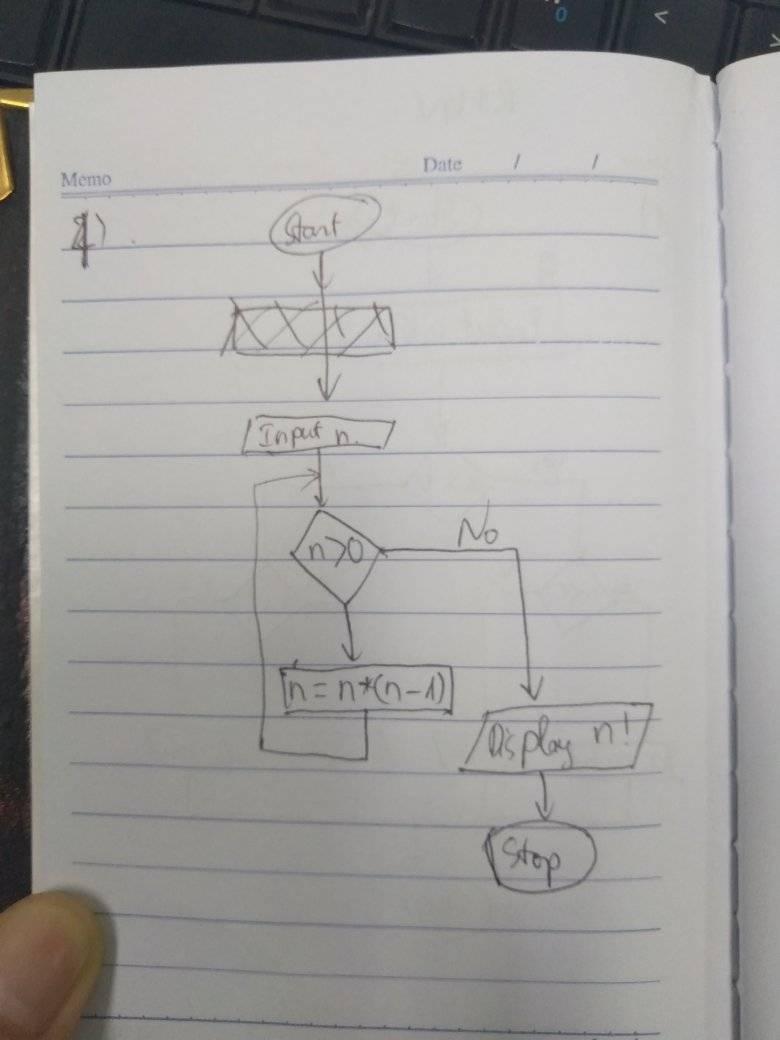 Memo Date / /
Start
Input n.
n>0
No
n = n*(n-1)
Display n!
Stop